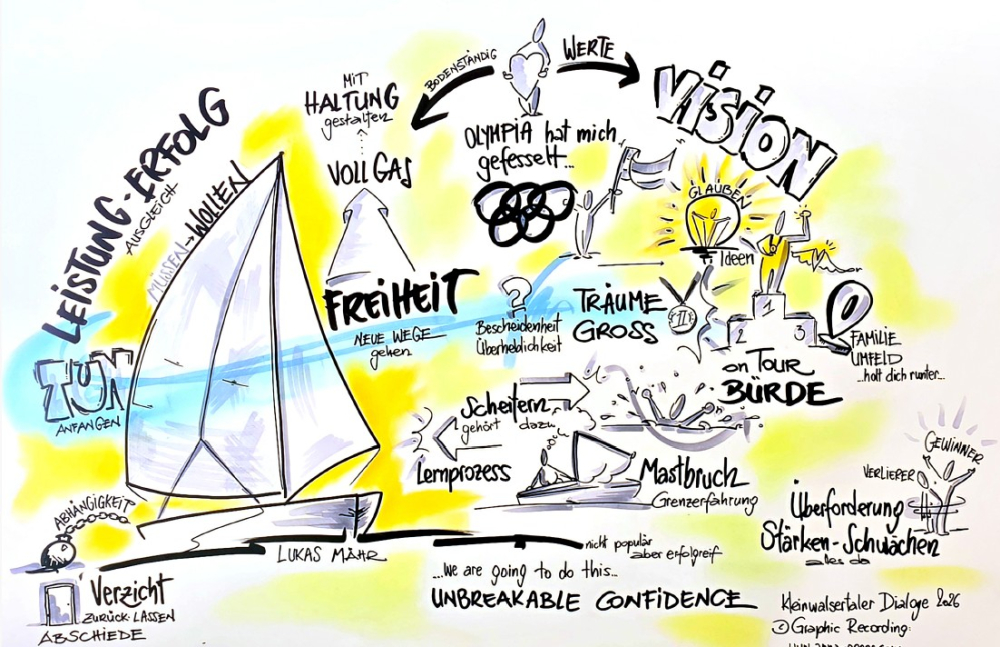 LEISTUNG-ERFOLG
AUSGLEICH
MÜSSEN → WOLLEN
MIT
HALTUNG
gestalten
VOLLGAS
BODENSTÄNDIG
WERTE
VISION
OLYMPIA hat mich
gefesselt...
GLAUBEN
Ideen
1
2
3
FREIHEIT
NEUE WEGE
gehen
?
Bescheidenheit
Überheblichkeit
TRÄUME
GROSS
II
FAMILIE
UMFELD
...holt dich runter...
on TOUR
BÜRDE
TUN
ANFANGEN
Scheitern
gehört dazu
Lernprozess
Mastbruch
Grenzerfahrung
GEWINNER
VERLIERER
Überforderung
Stärken-Schwächen
alles da
ABHÄNGIGKEIT
LUKAS MÄHR
nicht populär
aber erfolgreif
Verzicht
ZURÜCK-LASSEN
ABSCHIEDE
...we are going to do this...
UNBREAKABLE CONFIDENCE
Kleinwalsertaler Dialoge 2026
© Graphic Recording: